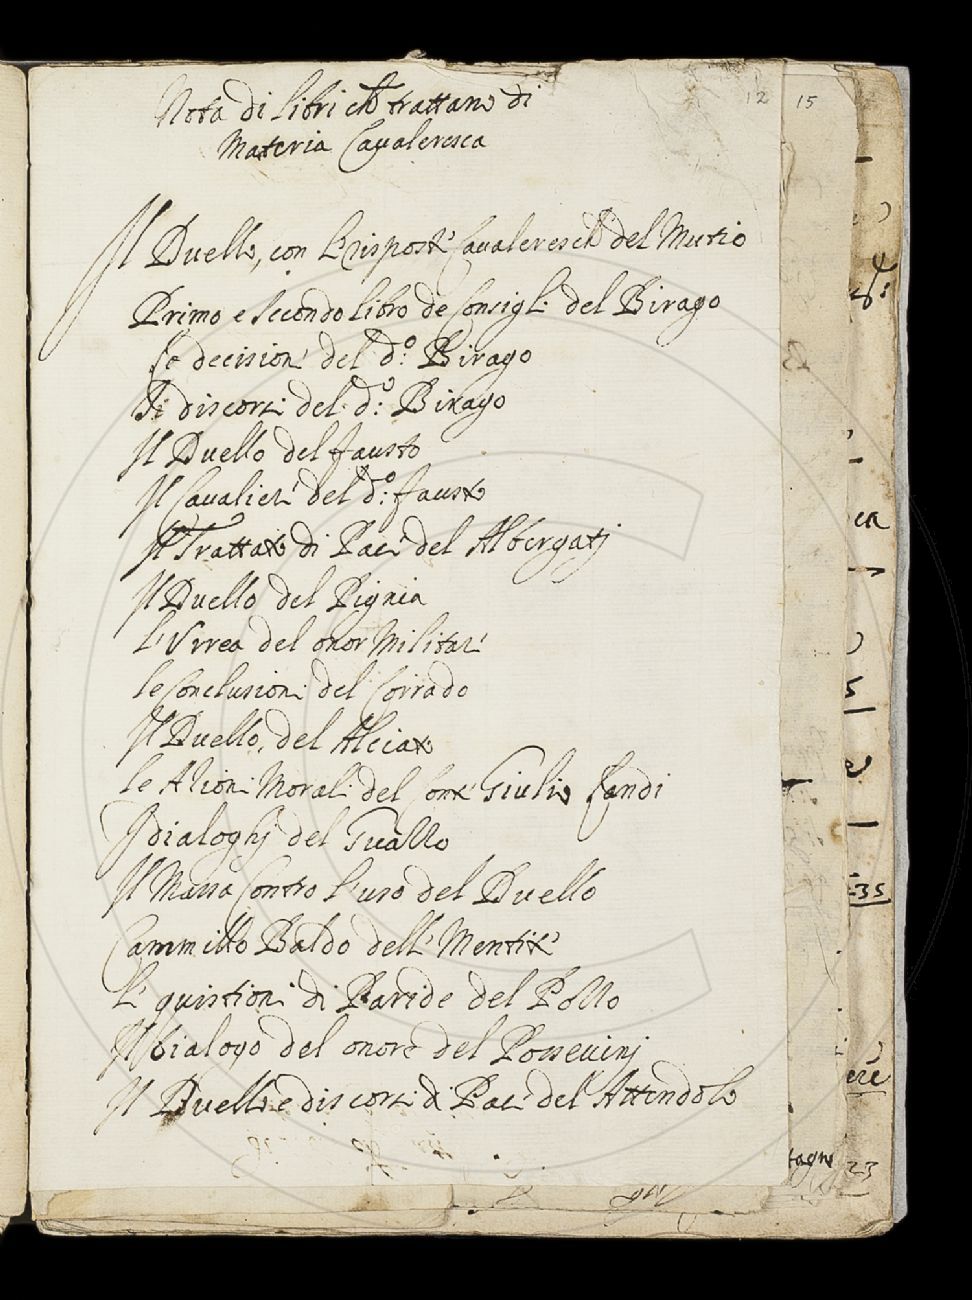 12 15
Nota di libri che trattano di
Materia Cavaleresca
Il Duello, con le risposte Cavaleresche del Mutio
Primo e secondo libro de Consigli del Birago
Le decisioni del d.º Birago
Di discorsi del d.º Birago
Il Duello del fausto
Il Cavalier del d.º fausto
Il Trattato di Paci del Albergatj
Il Duello del Pignia
L'Vrrea del onor Militar
le Conclusioni del Corrado
Il Duello, del Alciato
le Azioni Morali del Conte Giulio Landi
I dialoghj del Gualdo
Il Massa Contro l'uso del Duello
Cammillo Baldo dell' Mentite
Le quistioni di Paride del Pozzo
Il dialogo del onore del Possevinj
Il Duello e discorsi di Paci del Attendolo
ca
235
ere
tagne 23